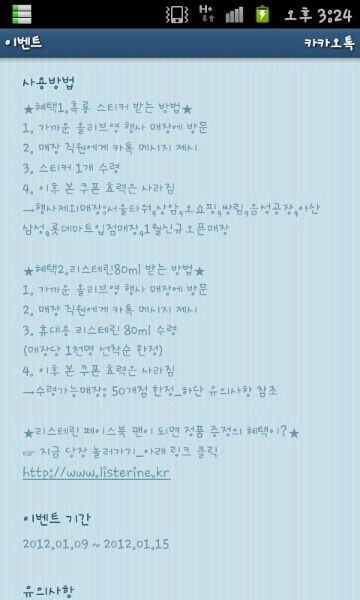 H+
오후 3:24
이벤트
카카오톡
사용방법
★혜택1.흑룡 스티커 받는 방법★
1. 가까운 올리브영 행사 매장에 방문
2. 매장 직원에게 카톡 메시지 제시
3. 스티커 1개 수령
4. 이후 본 쿠폰 효력은 사라짐
→행사제외매장:서울타워,상암,오쇼핑,쌍림,음성공장,아산
삼성,롯데마트입점매장,1월신규오픈매장
★혜택2.리스테린80ml 받는 방법★
1. 가까운 올리브영 행사 매장에 방문
2. 매장 직원에게 카톡 메시지 제시
3. 휴대용 리스테린 80ml 수령
(매장당 1천명 선착순 한정)
4. 이후 본 쿠폰 효력은 사라짐
→수령가능매장: 50개점 한정_하단 유의사항 참조
★리스테린 페이스북 팬이 되면 정품 증정의 혜택이?★
☞ 지금 당장 놀러가기_아래 링크 클릭
http://www.listerine.kr
이벤트 기간
2012.01.09 ~ 2012.01.15
유의사항